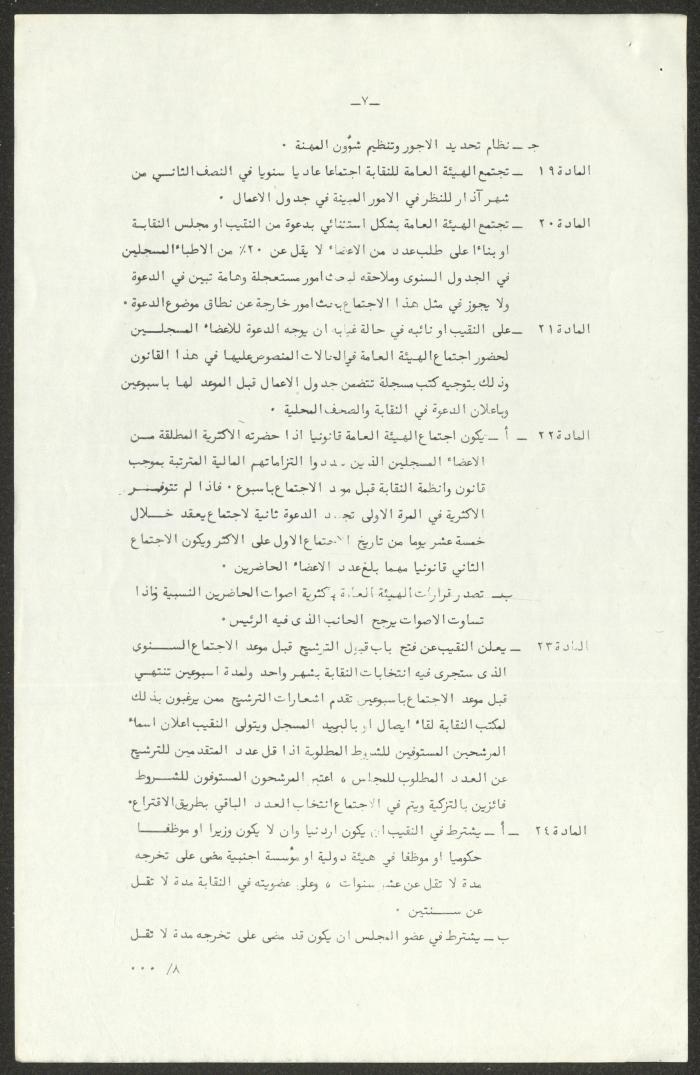 ــ٧ــ
جـ ــ نظام تحديد الاجور وتنظيم شؤون المهنة ٠
المادة ١٩ ــ تجتمع الهيئة العامة للنقابة اجتماعا عاديا سنويا في النصف الثانـي من
شهر آذار للنظر في الامور المبينة في جدول الاعمال ٠
المادة ٢٠ ــ تجتمع الهيئة العامة بشكل استثنائي بدعوة من النقيب او مجلس النقابـة
او بناءا على طلب عدد من الاعضاء لا يقل عن ٢٠٪ من الاطباء المسجلين
في الجدول السنوى وملاحقه لبحث امور مستعجلة وهامة تبين في الدعوة
ولا يجوز في مثل هذا الاجتماع بحث امور خارجة عن نطاق موضوع الدعوة ٠
المادة ٢١ ــ على النقيب او نائبه في حالة غيابه ان يوجه الدعوة للاعضاء المسجلـــين
لحضور اجتماع الهيئة العامة في الحالات المنصوص عليها في هذا القانون
وذلك بتوجيه كتب مسجلة تتضمن جدول الاعمال قبل الموعد لها باسبوعين
وباعلان الدعوة في النقابة والصحف المحلية ٠
المادة ٢٢ ــ أ ــ يكون اجتماع الهيئة العامة قانونيا اذا حضرته الاكثرية المطلقة مــن
الاعضاء المسجلين الذين سددوا التزاماتهم المالية المترتبة بموجب
قانون وانظمة النقابة قبل موعد الاجتماع باسبوع ٠ فاذا لم تتوفــــر
الاكثرية في المرة الاولى تجدد الدعوة ثانية لاجتماع يعقد خــــلال
خمسة عشر يوما من تاريخ الاجتماع الاول على الاكثر ويكون الاجتماع
الثاني قانونيا مهما بلغ عدد الاعضاء الحاضرين ٠
بــ تصدر قرارات الهيئة العامة باكثرية اصوات الحاضرين النسبية واذا
تساوت الاصوات يرجح الجانب الذى فيه الرئيس ٠
المادة ٢٣ ــ يعلن النقيب عن فتح باب قبول الترشيح قبل موعد الاجتماع الســـنوى
الذى ستجرى فيه انتخابات النقابة بشهر واحد ولمدة اسبوعين تنتهـي
قبل موعد الاجتماع باسبوعين تقدم اشعارات الترشيح ممن يرغبون بذلك
لمكتب النقابة لقاء ايصال او بالبريد المسجل ويتولى النقيب اعلان اسماء
المرشحين المستوفين للشروط المطلوبة اذا قل عدد المتقدمين للترشيح
عن العدد المطلوب للمجلس ، اعتبر المرشحون المستوفون للشـــروط
فائزين بالتزكية ويتم في الاجتماع انتخاب العدد الباقي بطريق الاقتراع٠
المادة ٢٤ ــ أ ــ يشترط في النقيب ان يكون اردنيا وان لا يكون وزيرا او موظفـــا
حكوميا او موظفا في هيئة دولية او مؤسسة اجنبية مضى على تخرجه
مدة لا تقل عن عشر سنوات ، وعلى عضويته في النقابة مدة لا تقـل
عن ســـنتين ٠
ب ــ يشترط في عضو المجلس ان يكون قد مضى على تخرجه مدة لا تقـل
٨/ ٠٠٠